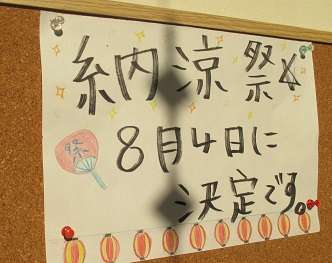 納涼祭☆
祭
8月4日に
決定です。